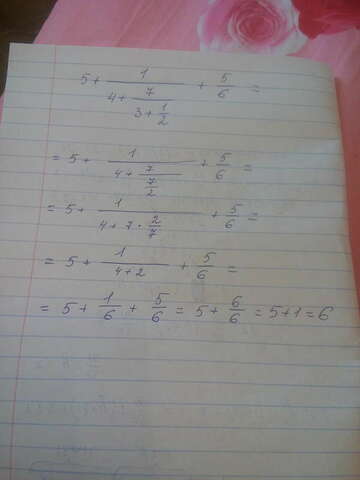 5 + 1/(4 + 7/(3 + 1/2)) + 5/6 =
= 5 + 1/(4 + 7/(7/2)) + 5/6 =
= 5 + 1/(4 + 7 · 2/7) + 5/6 =
= 5 + 1/(4 + 2) + 5/6 =
= 5 + 1/6 + 5/6 = 5 + 6/6 = 5 + 1 = 6